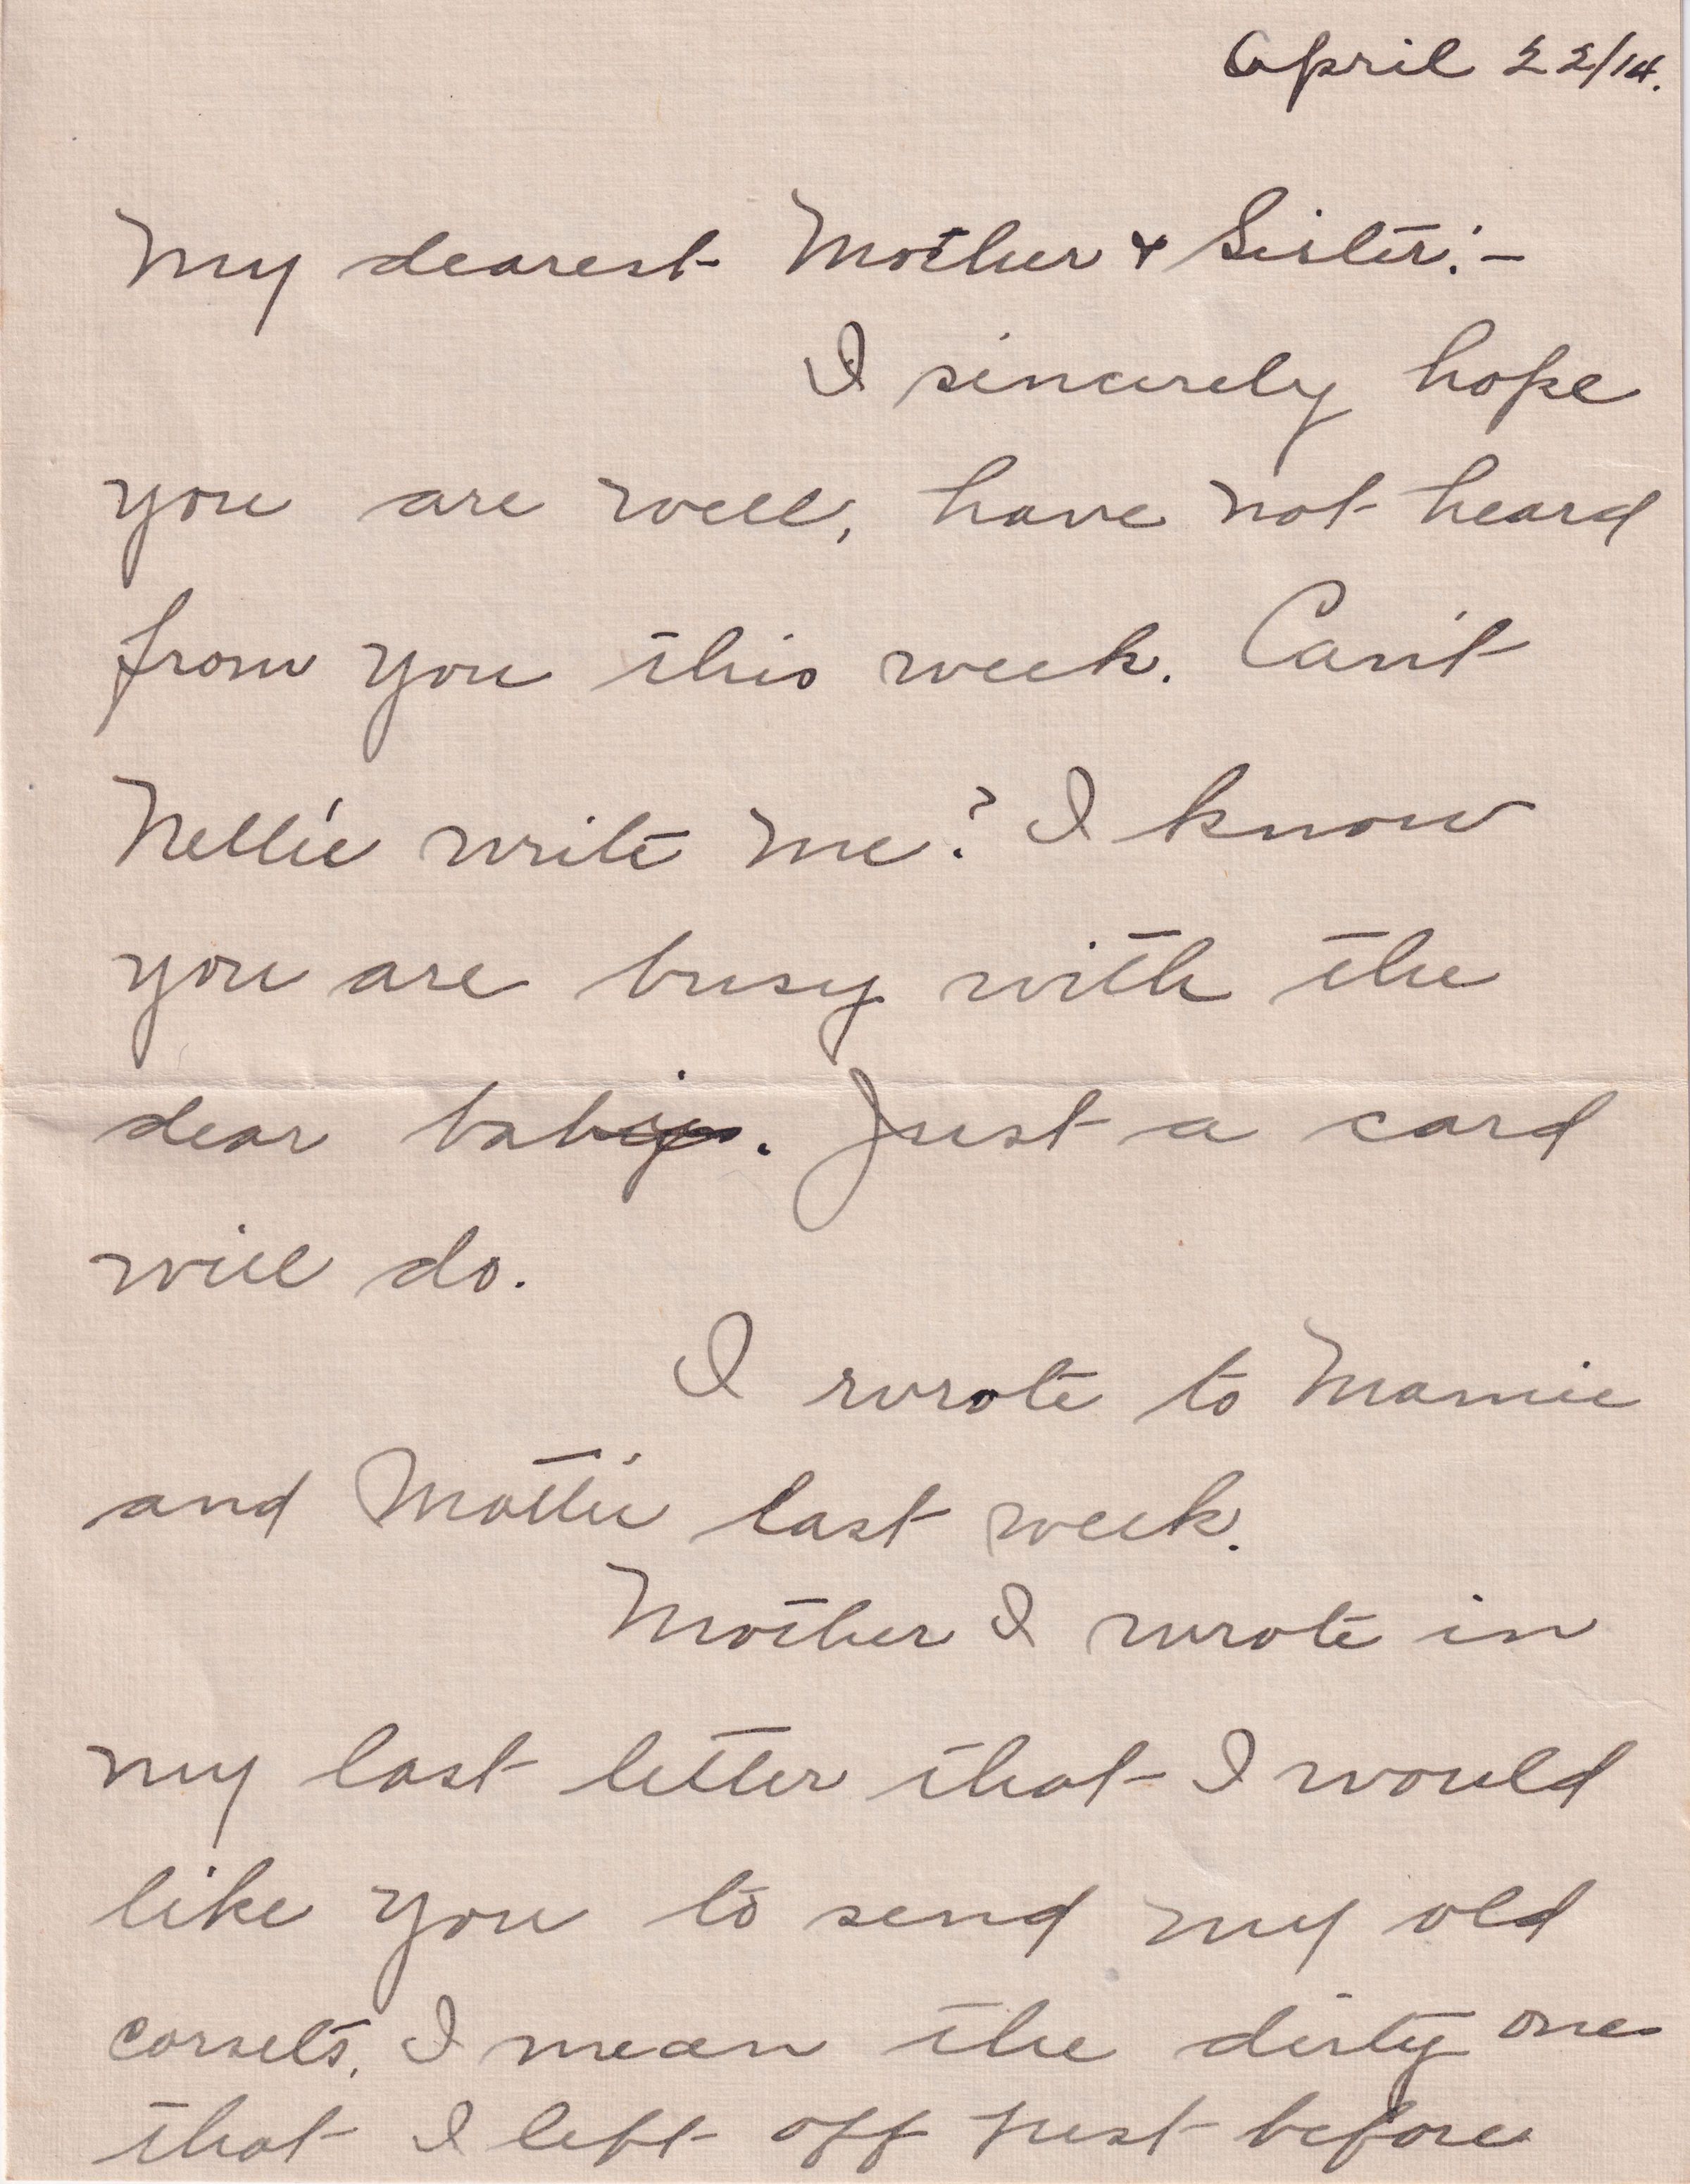 April 22/14.
My dearest Mother & Sister:-
I sincerely hope
you are well, have not heard
from you this week. Can't
Nellie write me? I know
you are busy with the
dear baby. Just a card
will do.
I wrote to Mamie
and Mattie last week.
Mother I wrote in
my last letter that I would
like you to send my old
corsets, I mean the dirty one
that I left off just before